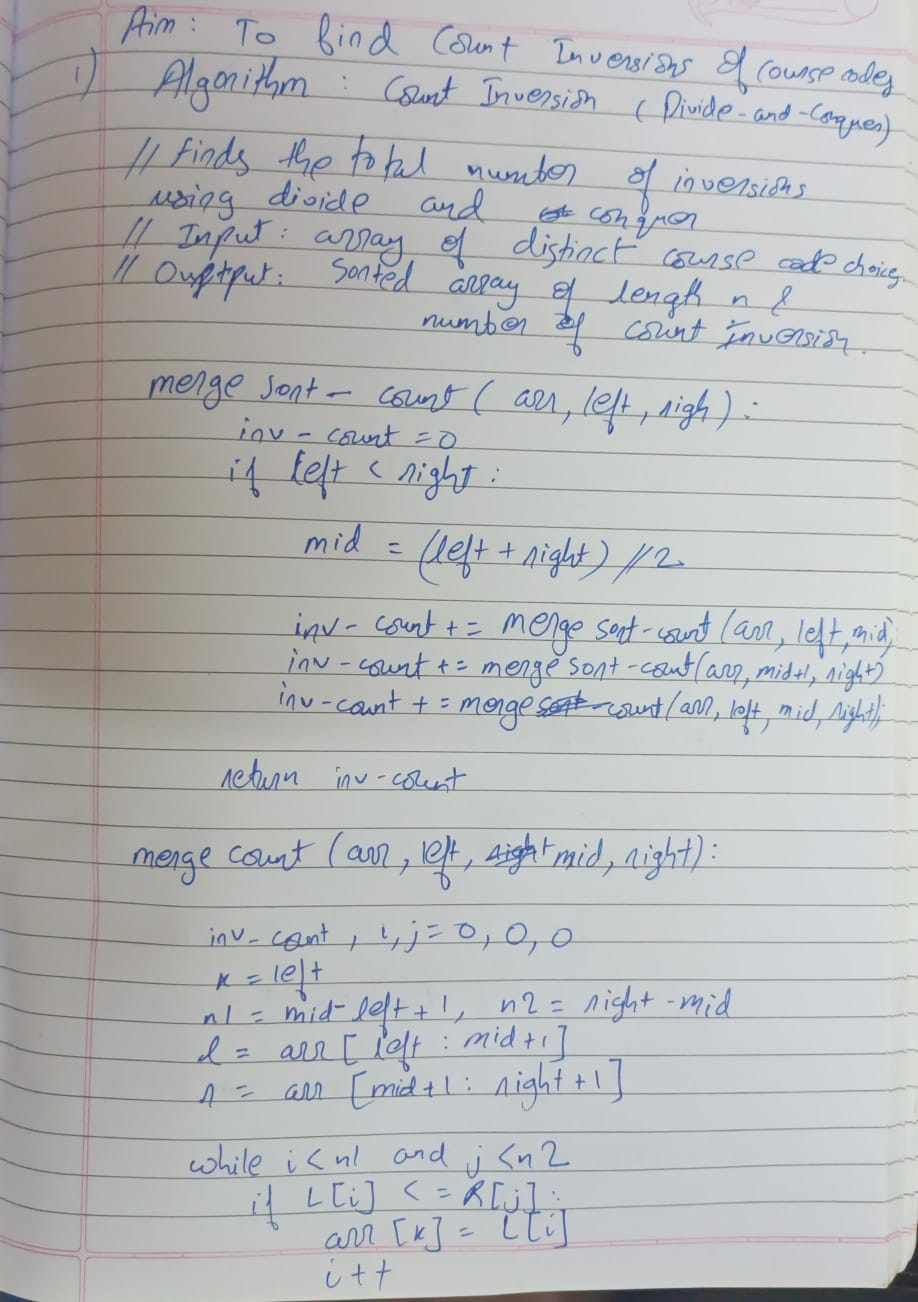 Aim: To find Count Inversions of course codes
1) Algorithm : Count Inversion (Divide-and-Conquer)
// finds the total number of inversions
using divide and conquer
// Input: array of distinct course code choices
// Ouptput: Sorted array of length n &
number of count inversion.
merge sort - count ( arr, left, righ ) :
inv - count = 0
if left < right :
mid = (left + right) //2
inv - count + = merge sort-count (arr, left, mid)
inv - count + = merge sort -count (arr, mid+1, right)
inv - count + = merge sort -count (arr, left, mid, right);
return inv - count
merge count (arr, left, right mid, right):
inv- count , i, j = 0, 0, 0
k = left
n1 = mid- left + 1, n2 = right - mid
l = arr [ left : mid +1]
r = arr [mid+1 : right +1]
while i < n1 and j < n2
if L[i] < = R[j] :
arr [k] = L[i]
i + +